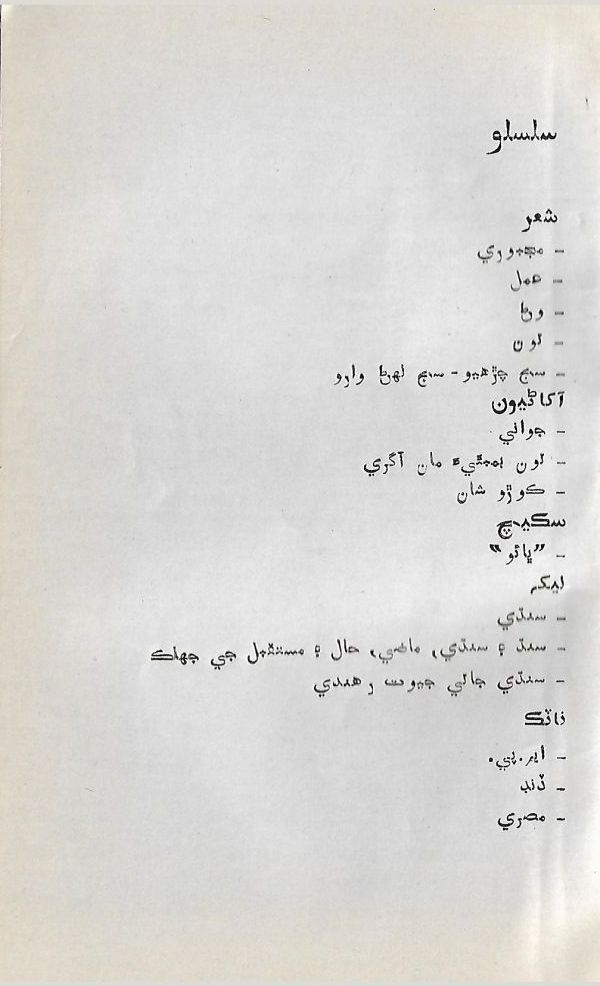 سلسلو
شعر
- مجبوري
- عمل
- وڻ
- لون
- سج چڙهيو - سج لهڻ وارو
آکاڻيون
- جواني
- لون بمبئيءَ مان آگري
- ڪوڙو شان
سڪيچ
- ”ڀائو“
ليک
- سنڌي
- سنڌ ۽ سنڌي، ماضي، حال ۽ مستقبل جي جھلڪ
- سنڌي جاتي جيوت رهندي
ناٽڪ
- ايم.پي.
- ڏند
- مصري